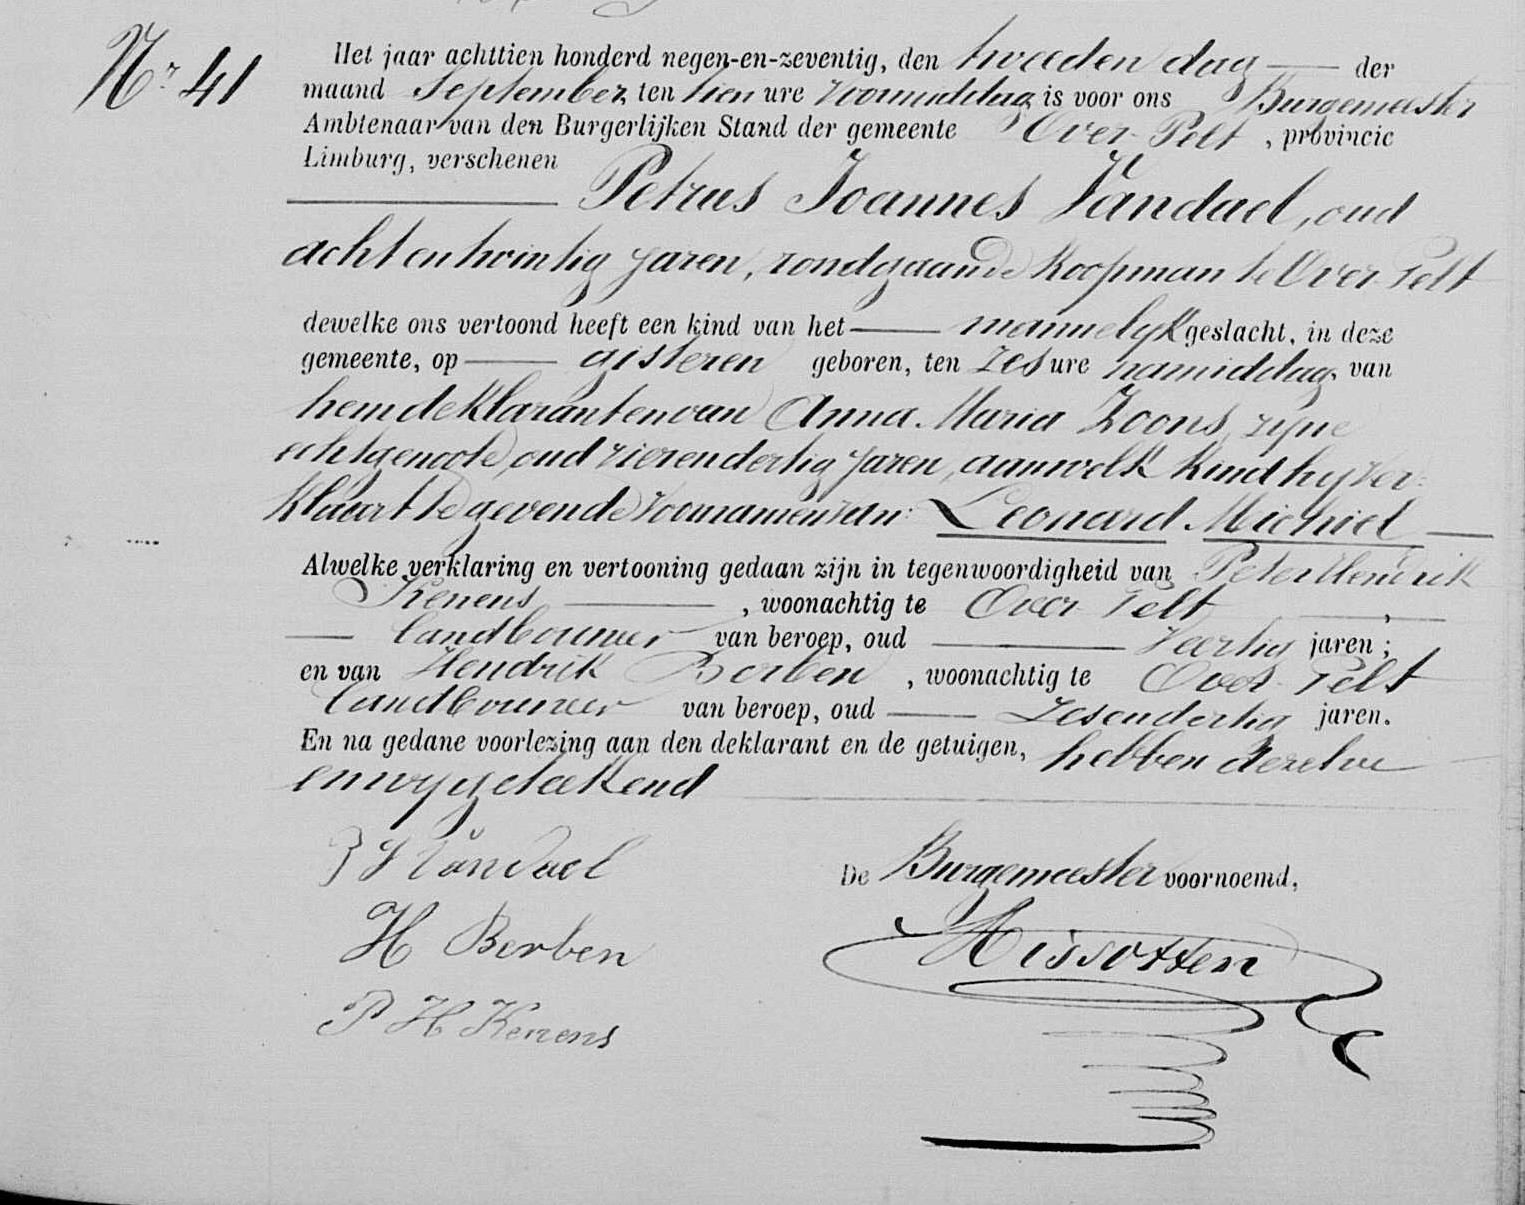 Nr 41
Het jaar achttien honderd negen-en-zeventig, den tweeden dag der
maand September, ten tien ure voormiddag, is voor ons Burgemeester
Ambtenaar van den Burgerlijken Stand der gemeente Over-Pelt, provincie
Limburg, verschenen
Petrus Joannes Vandael, oud
acht en twintig jaren, rondgaande Koopman te Over-Pelt
dewelke ons vertoond heeft een kind van het mannelyk geslacht, in deze
gemeente, op gisteren geboren, ten zes ure namiddag, van
hem deklarant en van Anna Maria Loons, zijne
echtgenote, oud vierendertig jaren, aan welk kind hy ver-
klaart te geven de voornamen van: Leonard Michiel
Alwelke verklaring en vertooning gedaan zijn in tegenwoordigheid van Peter Hendrik
Kenens, woonachtig te Over-Pelt,
landbouwer van beroep, oud veertig jaren;
en van Hendrik Berben, woonachtig te Over-Pelt
landbouwer van beroep, oud zesendertig jaren.
En na gedane voorlezing aan den deklarant en de getuigen, hebben dezelve
en wy geteekend
P J Vandael
De Burgemeester voornoemd,
H Berben
Missotten
P H Kenens